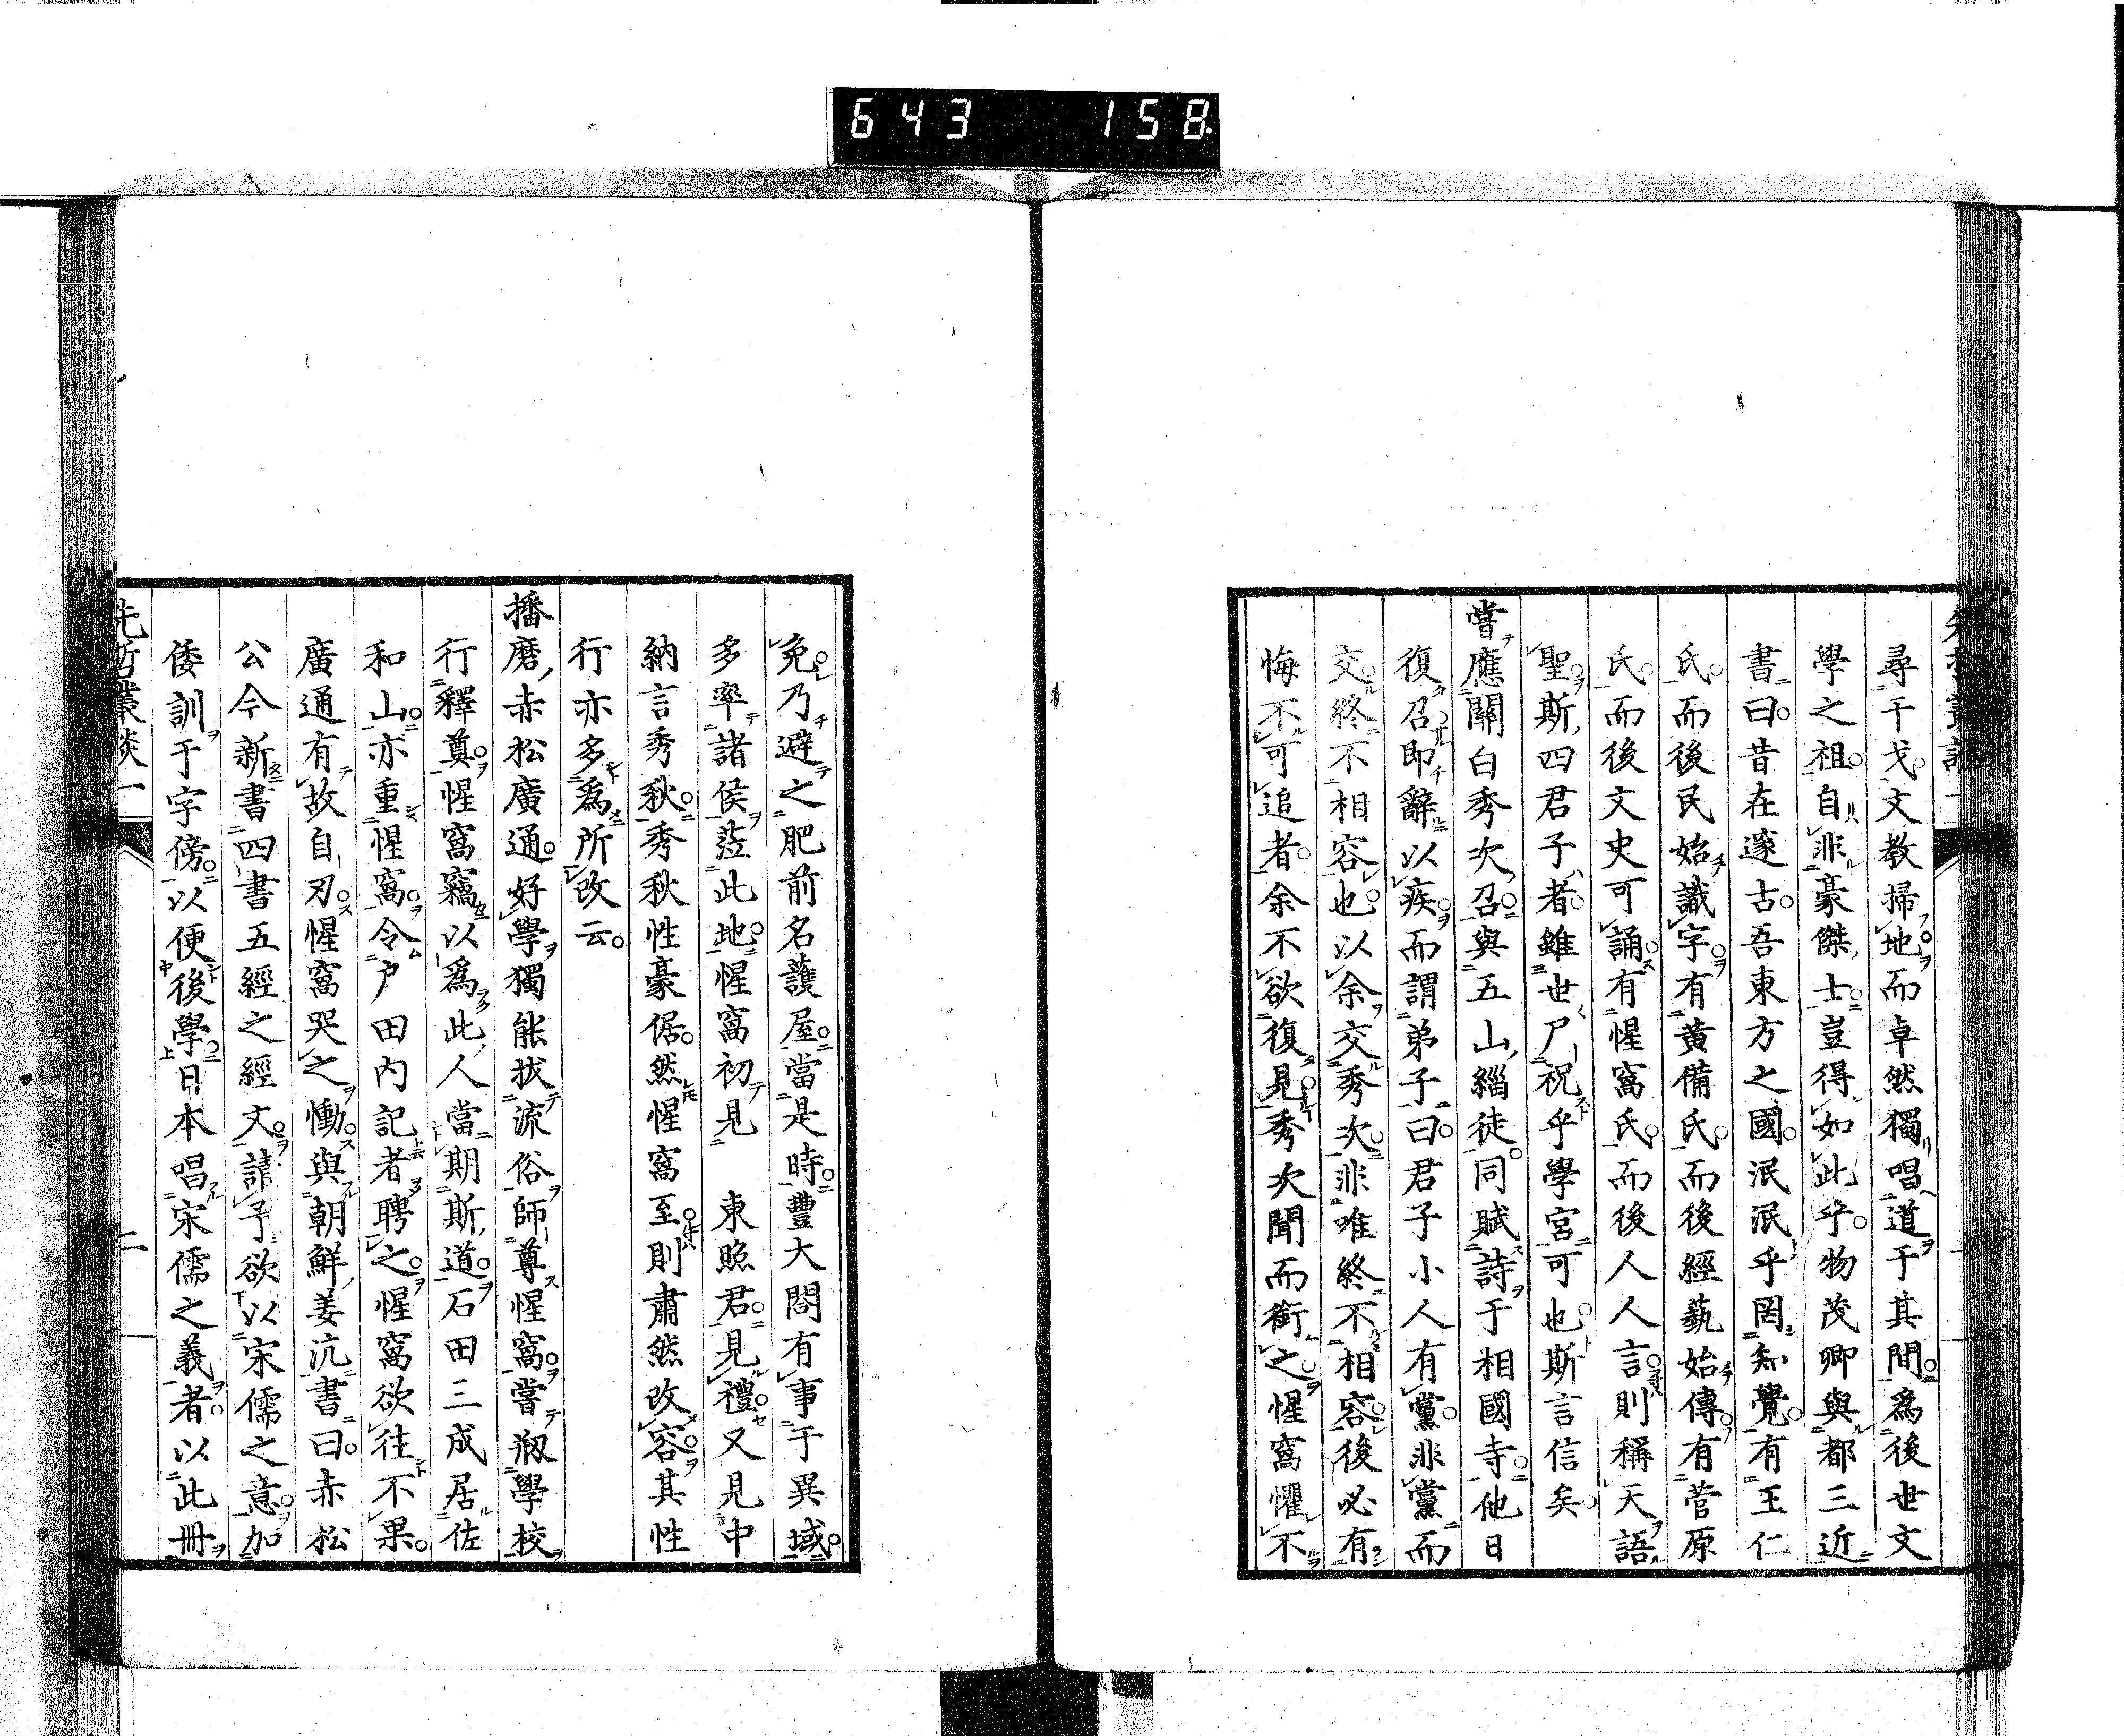 643 158
尋干戈文教掃地而卓然獨唱道于其間爲後世文
學之祖自非豪傑士豈得如此乎物茂卿與都三近
書曰昔在邃古吾東方之國泯泯乎罔知覺有王仁
氏而後民始識字有黃備氏而後經藝始傳有菅原
氏而後文史可誦有惺窩氏而後人人言則稱天語
聖斯四君子者雖世尸祝乎學宮可也斯言信矣
嘗應關白秀次召與五山緇徒同賦詩于相國寺他日
復召即辭以疾而謂弟子曰君子小人有黨非黨而
交終不相容也以余交秀次非唯終不相容後必有
悔不可追者余不欲復見秀次聞而銜之惺窩懼不
免乃避之肥前名護屋當是時豐大閤有事于異域
多率諸侯蒞此地惺窩初見 東照君見禮又見中
納言秀秋秀秋性豪倨然惺窩至則肅然改容其性
行亦多爲所改云
播磨赤松廣通好學獨能拔流俗師尊惺窩嘗剏學校
行釋奠惺窩竊以爲此人當期斯道石田三成居佐
和山亦重惺窩令戶田內記者聘之惺窩欲往不果
廣通有故自刃惺窩哭之慟與朝鮮姜沆書曰赤松
公今新書四書五經之經文請予欲以宋儒之意加
倭訓于字傍以便後學日本唱宋儒之義者以此冊
先哲叢談一
二